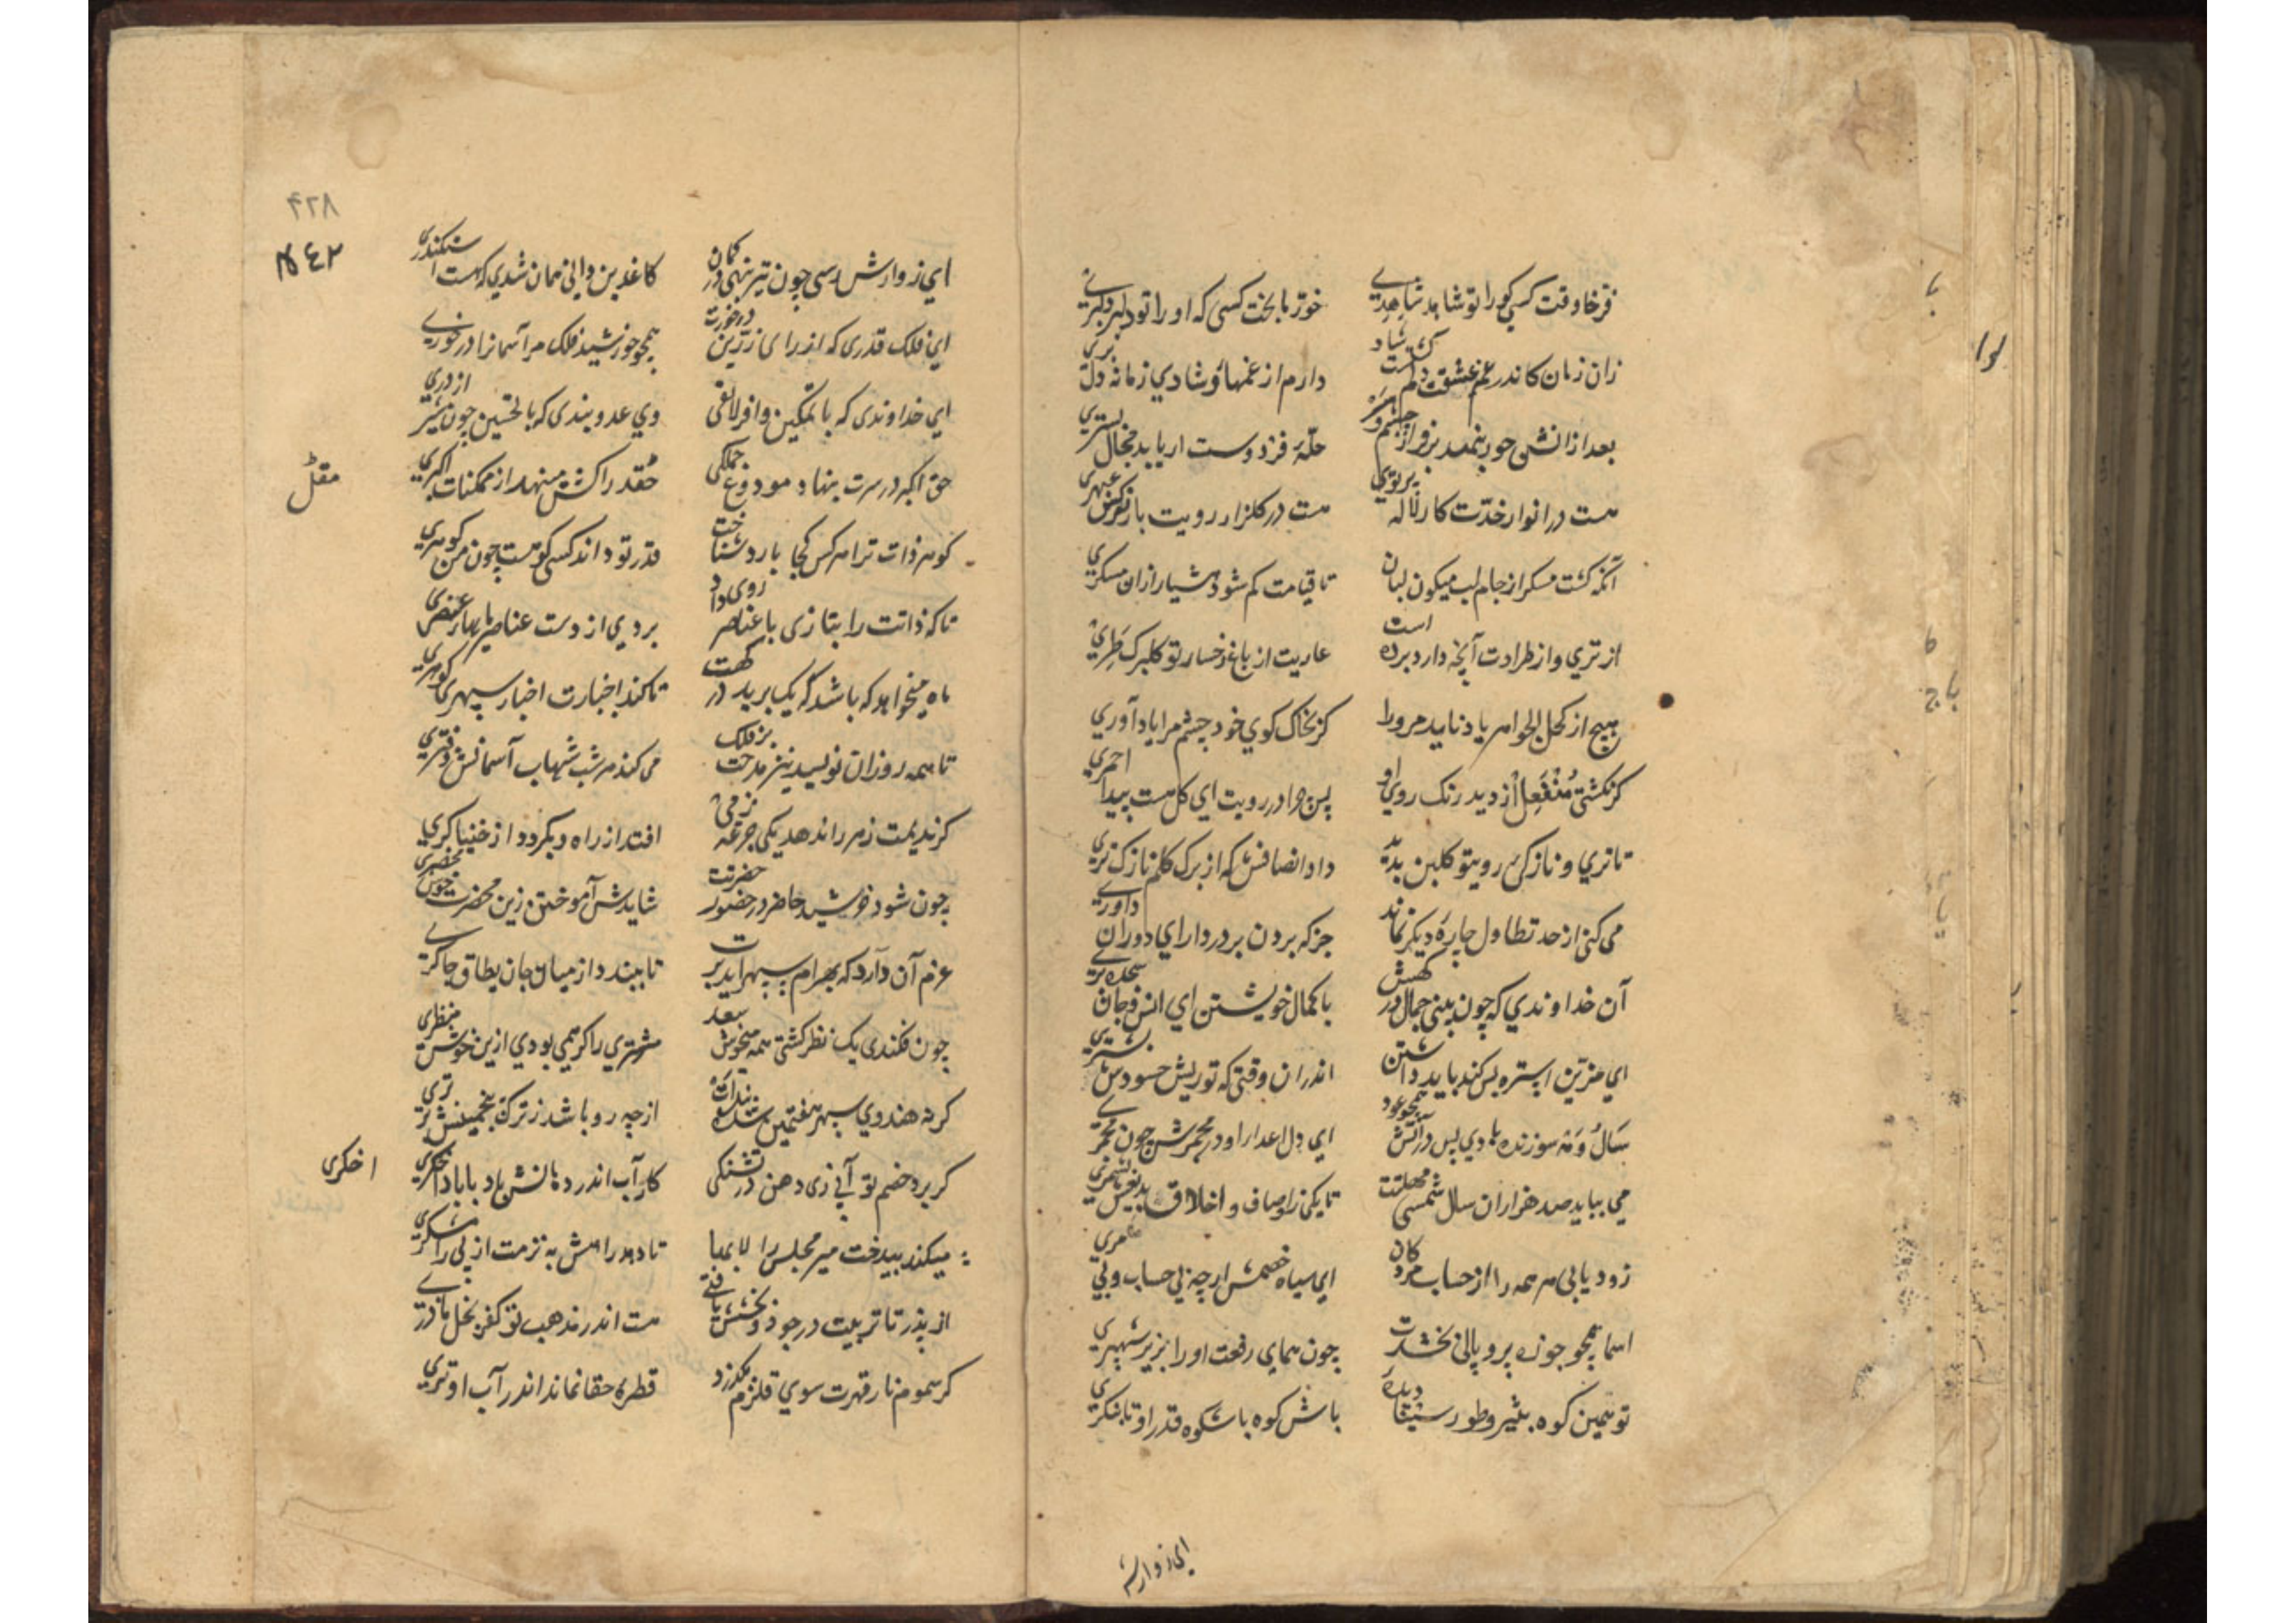 فرخا وقت کسی کورا تو شاهد شاهدی
خوز با بخت کسی که او را تو دلبر دلبری
زان زمان کاندر غم عشقت دلم کشت شاد
دارم از غمهاؤ شادی زمانه دل بری
بعد ازانش حور ننهد بر فراز چشم و سر
حلهٔ فردوست ار یابد مجال بستری
هست در انوار خدت کار لاله پرتوی
هست در کلزار رویت باز نرکس عبهری
آنکه کشت مسکر از جام لب میکون لبان
تا قیامت کم شود هشیار ازان مسکری
از تری و از طرادت آنچه دارد برده است
عاریت از باغ رخسار تو کلبرک طری
هیچ از کحل الجواهر یاد ناید مر ورا
کز خاک کوی خود چشم مرا یاد آوری
کر نکشتی منفعل از دید رنک روی او
پس چرا در رویت ای کل هست پیدا احمری
تا تری و نازکی رویتو کلبن بدید
داد انصافش که از برک کلم نازک تری
می کنی از حد تطاول چارهٔ دیکر نماند
جز که بردن بر در دارای دوران داوری
آن خداوندی که چون بینی جمال در کهش
با کمال خویشتن ای انس و جان سجده بری
ای مزین استره بس کند باید داشتن
اندران وقتی که تو ریش حسودش بستری
سال و مه سوزنده بادی پس در آتش همچو عود
ای دل اعدا را او در مجمرش چون مجمری
می بباید صد هزاران سال شمسی مهلتت
تا یکی ز اوصاف و اخلاق بدیعش بشمری
زود یابی مر همه را از حساب مردکان
ای سپاه خصمش ار چه بی حساب و بی مری
اسما همچو جوزه پر و بالی نخشدت
چون همای رفعت او را بزیر شهپری
تو همین کوه بثیر و طور سینا دیدهٔ
باش کوه با شکوه قدر او تا بنکری
ای ز وارش
۴۲۸
۴۶۲
ای ز وارش رسی چون تیر بنهی در کمان
کاغدین والی همان شدی که هست اسکندری
ای فلک قدری که از رای زرین در خورت
همچو خورشید فلک مر آسمانرا در خوری
ای خداوندی که با تمکین وافر لایقی
وی عدو بندی که با تحسین چون شیر از دری
حق اکبر در سرت بنهاد مودوع جملکی
مقدر اکنش منهد از ممکنات اکبری
مقل
کوهر ذات ترا هر کس کجا یارد شناخت
قدر تو داند کسی کو هست چون من کوهری
تا که ذاتت را بتازی با عناصر روی داد
بردی از دست عناصر بارها عنصری
ماه میخواهد که باشد که یک برید در کهت
تا کند اخبارت اخبار سپهری کوهری
تا همه روز ان نویسد تیز مدحت بر فلک
می کند هر شب شهاب آسمانش دفتری
کر ندیمت زهر را ندهد یکی جرعه ز می
افتد از راه و بکردد از خنیاکری
چون شود خورشید حاضر در حضور حضرتت
شایدش آموختن زین محضرت خوش محضری
عزم آن دارد که بهرام سپهر اید برت
تا ببندد از میان جان یطاق چاکری
چون فکندی یک نظر کشتی همه منحوش سعد
مشتری را کر همی بودی ازین خوش منظری
کر نه هندوی سپهر هفتمین شد بندات
از چه رو باشد ز ترک پنجمینش برتری
کر برد خصم تو آبی زی دهن در تشنکی
کار آب اندر دهانش باد بابا دا اخکری
اخکری
میکند بیدخت میر مجلس را لابها
تا دهد راهش به نزهت از پی رامشکری
از پدر تا تربیت در جود و بخشش یافتی
هست اندر مذهب تو کفر بخل مادری
کر سموم نار قهرت سوی قلزم بکذرد
قطرهٔ حقا نماند اندر آب او تری